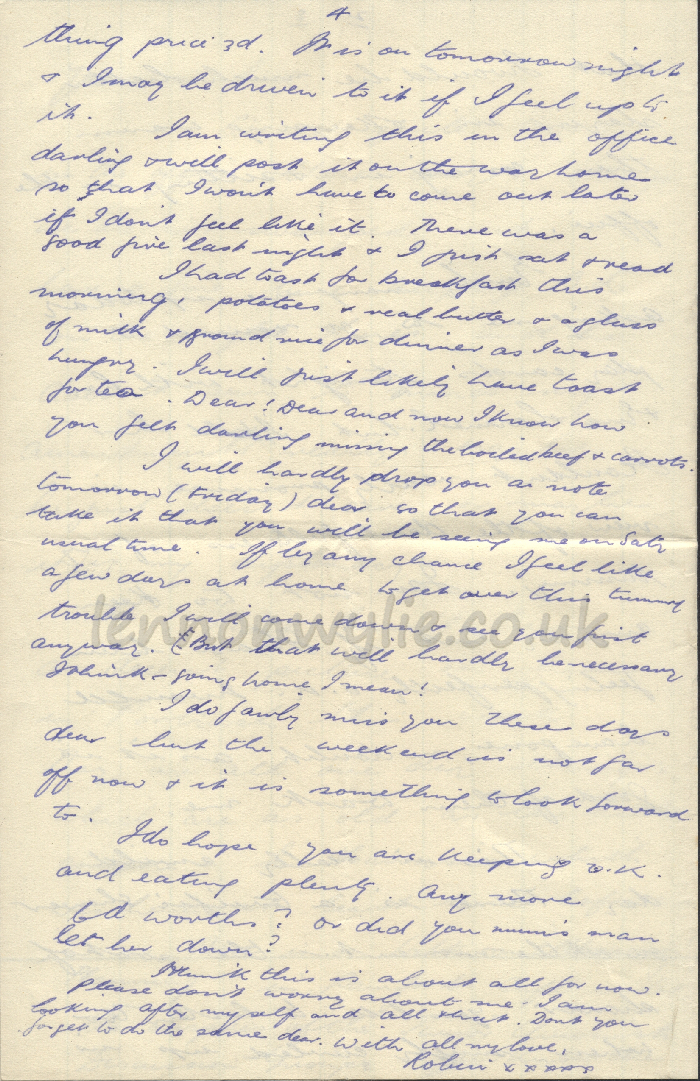 4
thing price 3d. It is on tomorrow night
& I may be driven to it if I feel up to
it.
I am writing this in the office
darling & will post it on the way home
so that I won't have to come out later
if I don't feel like it. There was a
good fire last night & I just sat & read
I had toast for breakfast this
morning, potatoes & real butter & a glass
of milk & ground rice for dinner as I was
hungry. I will just likely have toast
for tea. Dear! Dear and now I know how
you felt darling missing the boiled beef & carrots.
I will hardly drop you a note
tomorrow (Friday) dear so that you can
take it that you will be seeing me on Satdy
usual time. If by any chance I feel like
a few days at home to get over this tummy
trouble I will come down & see you first
anyway. (But that will hardly be necessary
I think - going home I mean!
I do fairly miss you these days
dear but the weekend is not far
off now & it is something to look forward
to.
I do hope you are keeping O.K.
and eating plenty any more
6d worths? or did your mum's man
let her down?
I think this is about all for now.
Please don't worry about me. I am
looking after myself and all that. Don't you
forget to do the same dear. With all my love,
Robin xxxxx
lennonwylie.co.uk